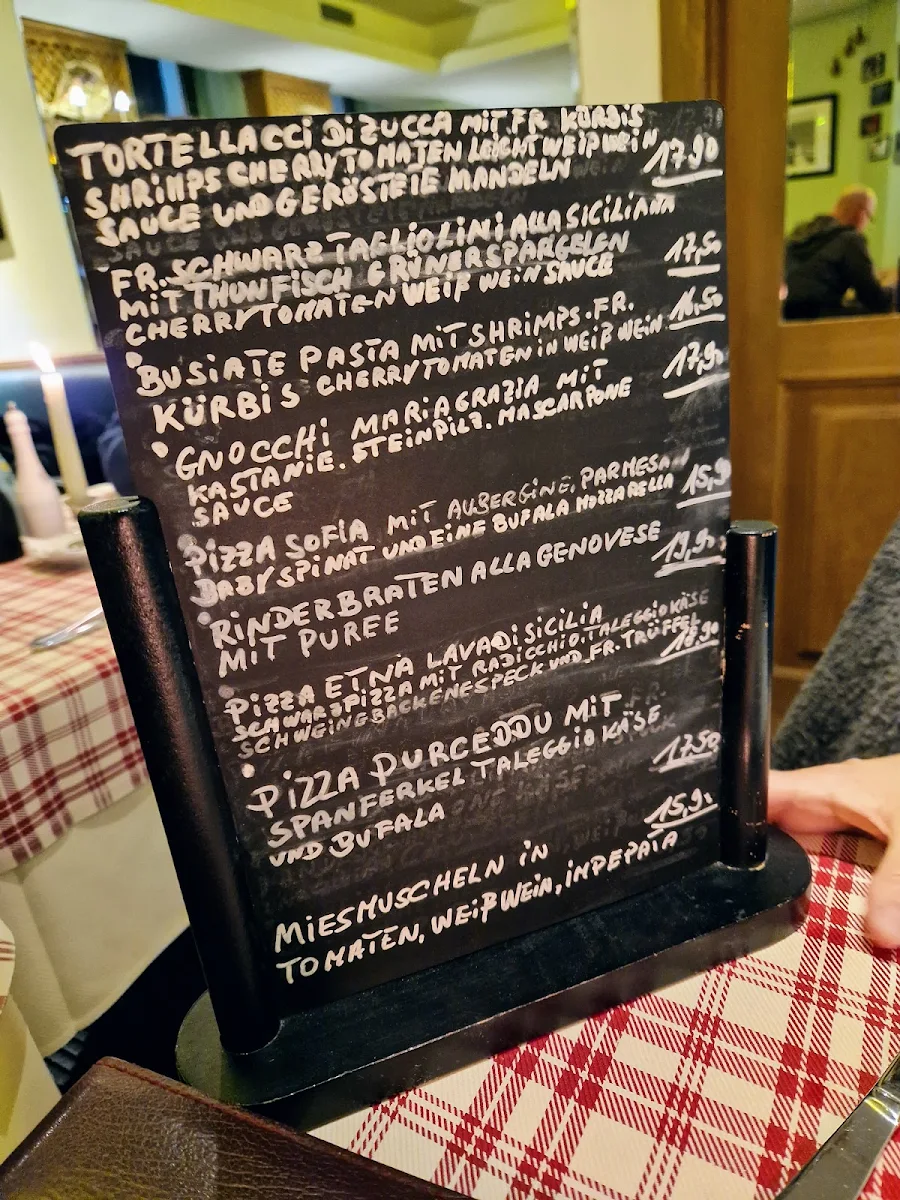 TORTELLACCI DI ZUCCA MIT FR. KÜRBIS
SHRIMPS CHERRYTOMATEN LEICHT WEIßWEIN 17,90
SAUCE UND GERÖSTETE MANDELN
FR. SCHWARZ TAGLIOLINI ALLA SICILIANA
MIT THUNFISCH GRÜNERSPARGELN 17,50
CHERRYTOMATEN WEIß WEIN SAUCE
BUSIATE PASTA MIT SHRIMPS. FR. 16,50
KÜRBIS CHERRYTOMATEN IN WEIß WEIN
GNOCCHI MARIAGRAZIA MIT 17,90
KASTANIE. STEINPILZ. MASCARPONE
SAUCE
PIZZA SOFIA MIT AUBERGINE, PARMESAN 15,90
BABYSPINAT UND EINE BUFALA MOZZARELLA
RINDERBRATEN ALLA GENOVESE 19,90
MIT PUREE
PIZZA ETNA LAVA DI SICILIA
SCHWARZPIZZA MIT RADICCHIO, TALEGGIO KÄSE
SCHWEINGBACKENESPECK UND FR. TRÜFFEL
PIZZA PURCEDDU MIT
SPANFERKEL TALEGGIO KÄSE 17,50
UND BUFALA
MIESMUSCHELN IN 15,90
TOMATEN, WEIßWEIN, IMPEPATA